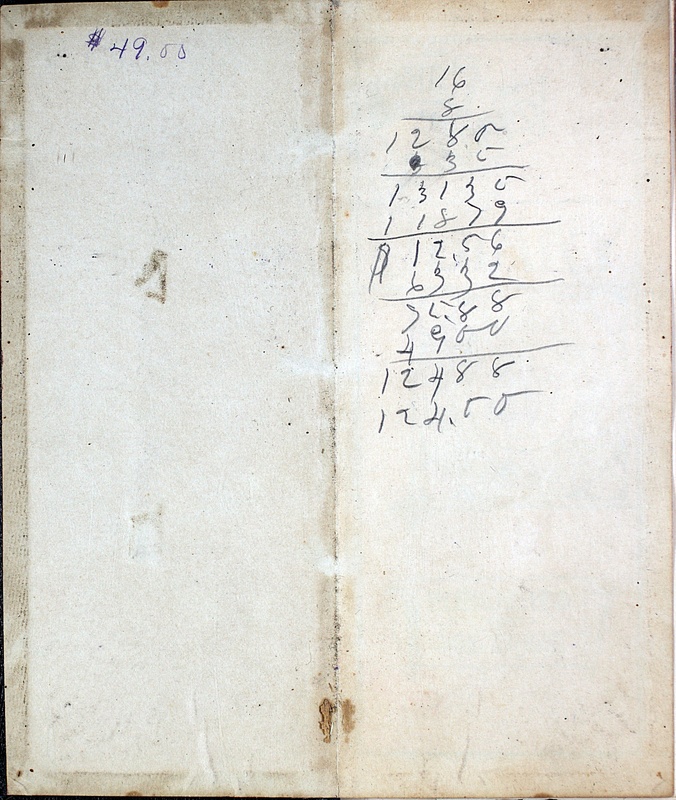 $49.00
16
8
128.00
3 35
131 35
118 79
$ 12.56
63 32
75.88
49 00
124 88
124.00